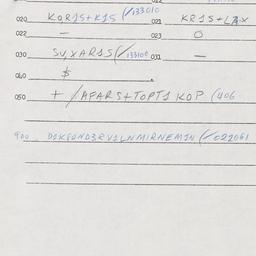 020 KQR1S+K1S (/133010 021 KR1S+
022 — 023 0
030 SV,XAR1S(/133100 031 —
040 $
050 + /AFARS+TOPT1 KOP (406
900 D1KFQND3RV1LNMIRNEM1N (/022061